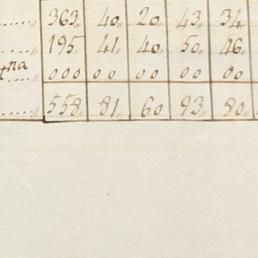 363. 40. 20. 43. 34
195. 41. 40. 50. 46.
tna 000 00 00 00 00
558. 81. 60. 93. 80.